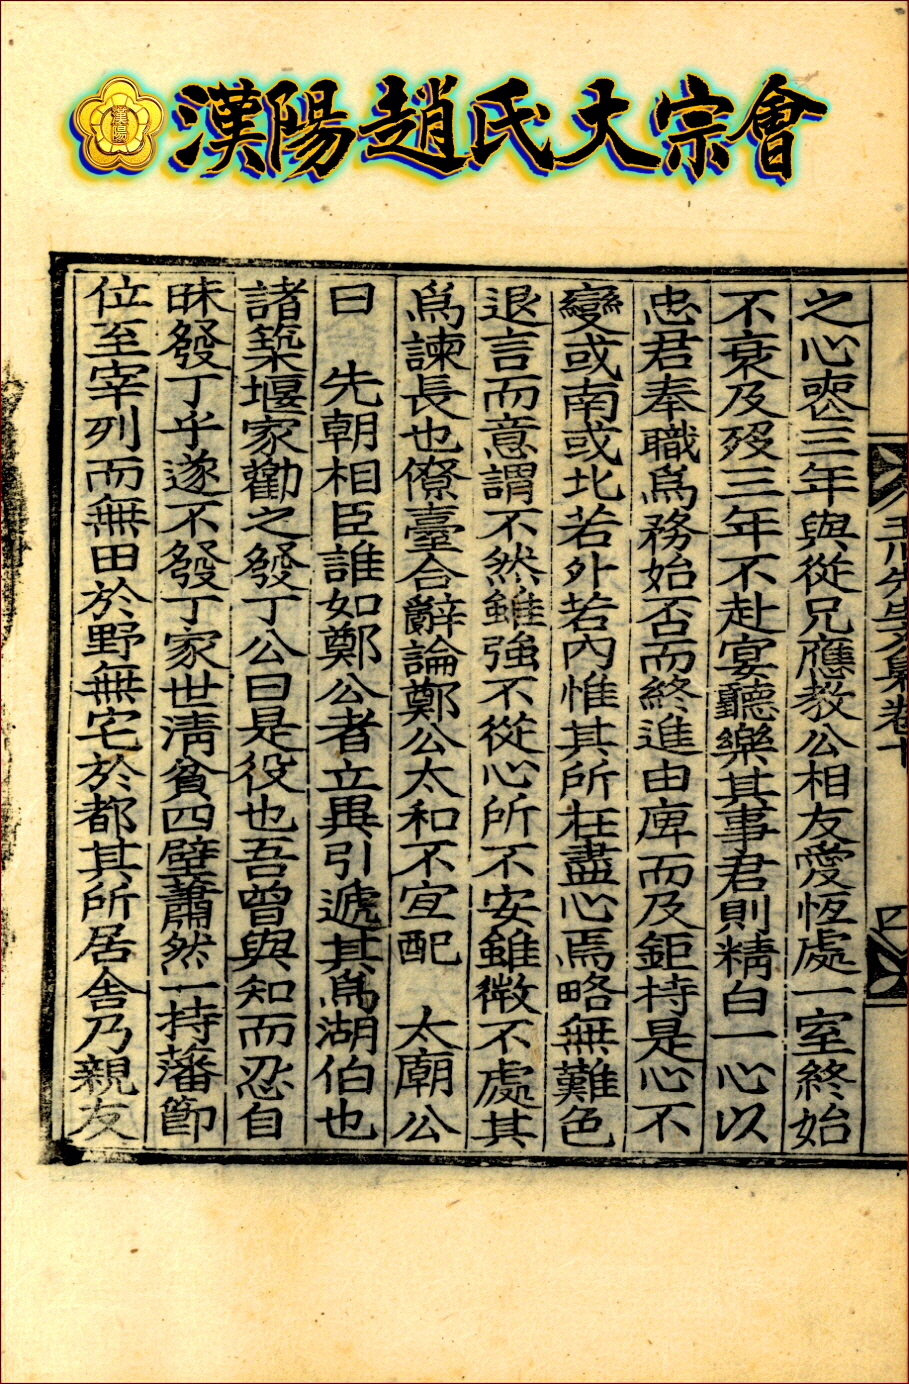 漢陽趙氏大宗會
漢陽
之心喪三年與從兄應教公相友愛恆處一室終始
不衰及歿三年不赴宴聽樂其事君則精白一心以
忠君奉職爲務始否而終進由庳而及鉅持是心不
變或南或北若外若內惟其所在盡心焉略無難色
退言而意謂不然雖強不從心所不安雖微不處其
爲諫長也僚臺合辭論鄭公太和不宜配 太廟公
曰 先朝相臣誰如鄭公者立異引遞其爲湖伯也
諸築堰家勸之發丁公曰是役也吾曾與知而忍自
昧發丁乎遂不發丁家世淸貧四壁蕭然一持藩節
位至宰列而無田於野無宅於都其所居舍乃親友
先生文集卷十
四